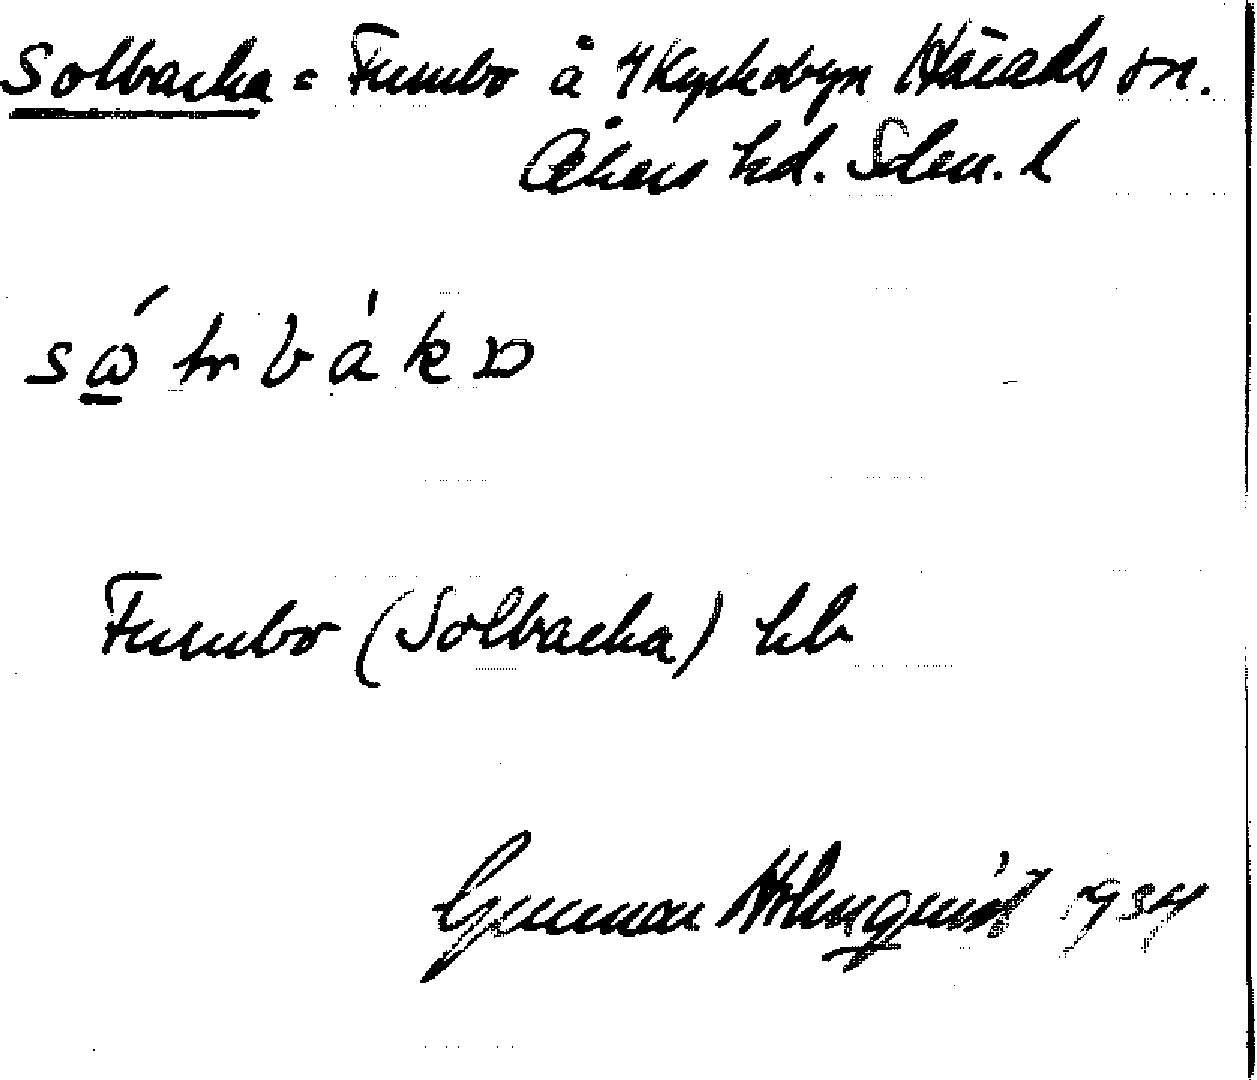 Solbacka = Furubo å Kyrkobyn Härads sn.
Åkers hd. Sdm. l
Furubo (Solbacka) hb
Gunnar Holmquist 1934